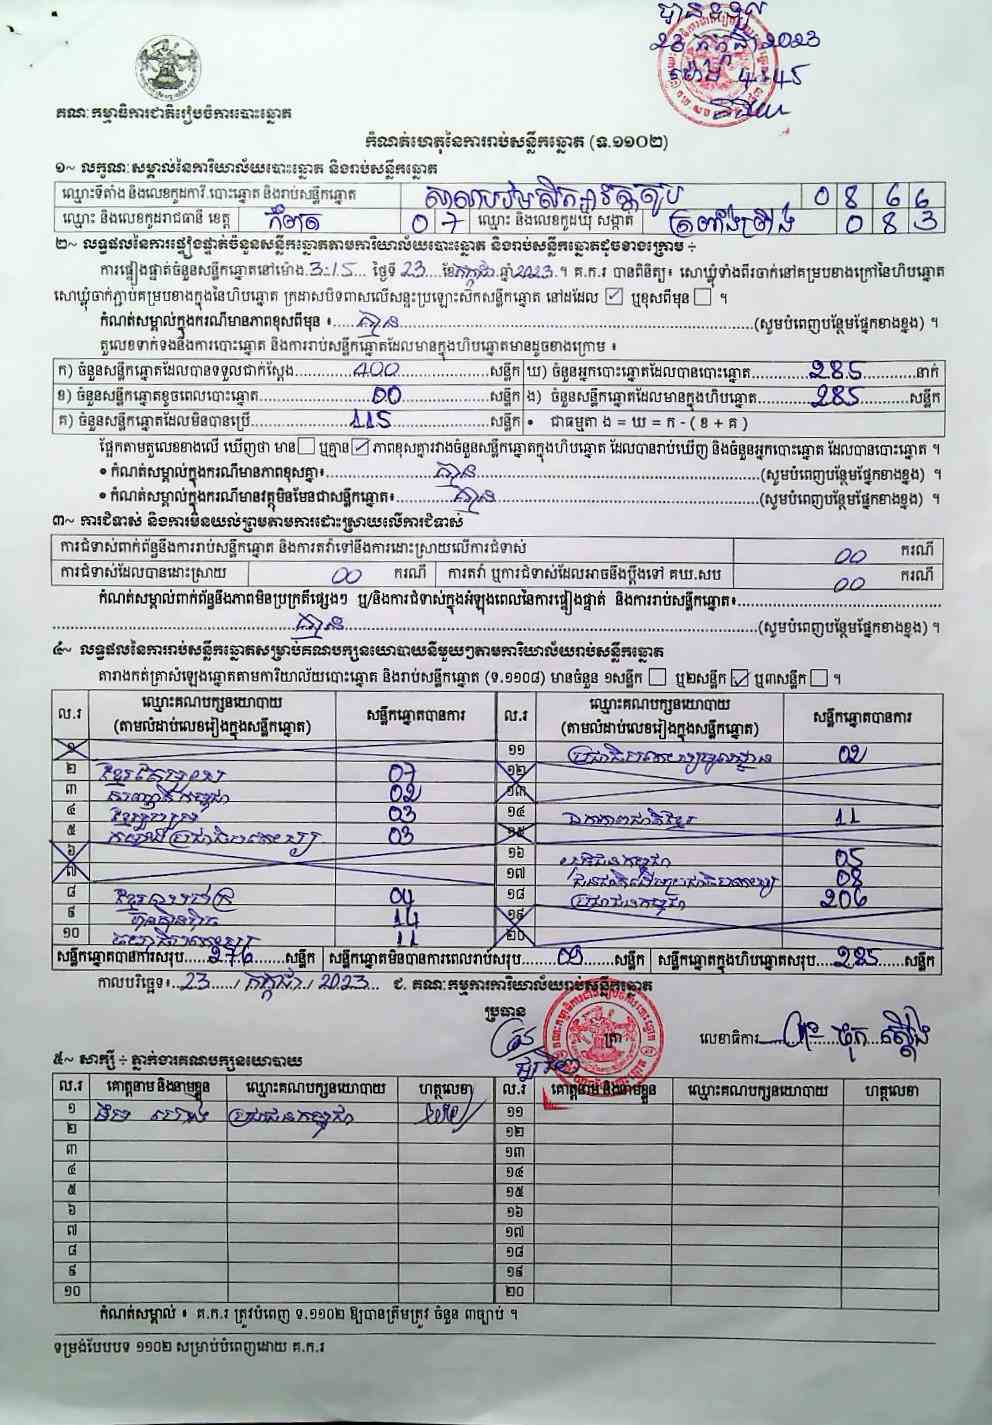 បានទទួល
23 កក្កដា 2023
ម៉ោង 4:45
គណៈកម្មាធិការជាតិរៀបចំការបោះឆ្នោត
កំណត់ហេតុនៃការរាប់សន្លឹកឆ្នោត (ទ.១១០២)
១~ លក្ខណៈសម្គាល់នៃការិយាល័យបោះឆ្នោត និងរាប់សន្លឹកឆ្នោត
ឈ្មោះទីតាំង និងលេខកូដការិ.បោះឆ្នោត និងរាប់សន្លឹកឆ្នោត 0 8 6 6
ឈ្មោះ និងលេខកូដរាជធានី ខេត្ត កំពត 0 7 ឈ្មោះ និងលេខកូដឃុំ សង្កាត់ 0 8 3
២~ លទ្ធផលនៃការផ្ទៀងផ្ទាត់ចំនួនសន្លឹកឆ្នោតតាមការិយាល័យបោះឆ្នោត និងរាប់សន្លឹកឆ្នោតដូចខាងក្រោម ÷
ការផ្ទៀងផ្ទាត់ចំនួនសន្លឹកឆ្នោតនៅម៉ោង 3:15 ថ្ងៃទី 23 ខែ កក្កដា ឆ្នាំ 2023 ។ គ.ក.រ បានពិនិត្យ៖ សោឃ្លុំទាំងពីរចាក់នៅគម្របខាងក្រៅនៃហិបឆ្នោត
សោឃ្លុំចាក់ភ្ជាប់គម្របខាងក្នុងនៃហិបឆ្នោត ក្រដាសបិទពាសលើសន្ទះប្រឡោះសៀតសន្លឹកឆ្នោត នៅដដែល ☑ ឬខុសពីមុន ☐ ។
កំណត់សម្គាល់ក្នុងករណីមានភាពខុសពីមុន ៖ គ្មាន (សូមបំពេញបន្ថែមផ្នែកខាងខ្នង) ។
តួលេខទាក់ទងនឹងការបោះឆ្នោត និងការរាប់សន្លឹកឆ្នោតដែលមានក្នុងហិបឆ្នោតមានដូចខាងក្រោម ៖
ក) ចំនួនសន្លឹកឆ្នោតដែលបានទទួលជាក់ស្តែង 400 សន្លឹក ឃ) ចំនួនអ្នកបោះឆ្នោតដែលបានបោះឆ្នោត 285 នាក់
ខ) ចំនួនសន្លឹកឆ្នោតខូចពេលបោះឆ្នោត 00 សន្លឹក ង) ចំនួនសន្លឹកឆ្នោតដែលមានក្នុងហិបឆ្នោត 285 សន្លឹក
គ) ចំនួនសន្លឹកឆ្នោតដែលមិនបានប្រើ 115 សន្លឹក • ជាធម្មតា ង = ឃ = ក - ( ខ + គ )
ផ្អែកតាមតួលេខខាងលើ ឃើញថា មាន ☐ ឬគ្មាន ☑ ភាពខុសគ្នារវាងចំនួនសន្លឹកឆ្នោតក្នុងហិបឆ្នោត ដែលបានរាប់ឃើញ និងចំនួនអ្នកបោះឆ្នោត ដែលបានបោះឆ្នោត ។
• កំណត់សម្គាល់ក្នុងករណីមានភាពខុសគ្នា៖ គ្មាន (សូមបំពេញបន្ថែមផ្នែកខាងខ្នង) ។
• កំណត់សម្គាល់ក្នុងករណីមានវត្ថុមិនមែនជាសន្លឹកឆ្នោត៖ គ្មាន (សូមបំពេញបន្ថែមផ្នែកខាងខ្នង) ។
៣~ ការជំទាស់ និងការមិនយល់ព្រមតាមការដោះស្រាយលើការជំទាស់
ការជំទាស់ពាក់ព័ន្ធនឹងការរាប់សន្លឹកឆ្នោត និងការតវ៉ាទៅនឹងការដោះស្រាយលើការជំទាស់ 00 ករណី
ការជំទាស់ដែលបានដោះស្រាយ 00 ករណី ការតវ៉ា ឬការជំទាស់ដែលអាចនឹងប្តឹងទៅ គឃ.សប 00 ករណី
កំណត់សម្គាល់ពាក់ព័ន្ធនឹងភាពមិនប្រក្រតីផ្សេងៗ ឬ/និងការជំទាស់ក្នុងអំឡុងពេលនៃការផ្ទៀងផ្ទាត់ និងការរាប់សន្លឹកឆ្នោត៖
គ្មាន (សូមបំពេញបន្ថែមផ្នែកខាងខ្នង) ។
៤~ លទ្ធផលនៃការរាប់សន្លឹកឆ្នោតសម្រាប់គណបក្សនយោបាយនីមួយៗតាមការិយាល័យរាប់សន្លឹកឆ្នោត
តារាងកត់ត្រាសំឡេងឆ្នោតតាមការិយាល័យបោះឆ្នោត និងរាប់សន្លឹកឆ្នោត (ទ.១១០៨) មានចំនួន ១សន្លឹក ☐ ឬ២សន្លឹក ☑ ឬ៣សន្លឹក ☐ ។
ល.រ ឈ្មោះគណបក្សនយោបាយ (តាមលំដាប់លេខរៀងក្នុងសន្លឹកឆ្នោត) សន្លឹកឆ្នោតបានការ ល.រ ឈ្មោះគណបក្សនយោបាយ (តាមលំដាប់លេខរៀងក្នុងសន្លឹកឆ្នោត) សន្លឹកឆ្នោតបានការ
១ ១១ ប្រជាធិបតេយ្យមូលដ្ឋាន 02
២ ខ្មែរតែមួយ 07 ១២
៣ 02 ១៣
៤ 03 ១៤ ឯកភាពជាតិខ្មែរ 11
៥ កម្លាំងប្រជាធិបតេយ្យ 03 ១៥
៦ ១៦ 05
៧ ១៧ 08
៨ 04 ១៨ ប្រជាជនកម្ពុជា 206
៩ ហ៊្វុនស៊ិនប៉ិច 14 ១៩
១០ 11 ២០
សន្លឹកឆ្នោតបានការសរុប 276 សន្លឹក សន្លឹកឆ្នោតមិនបានការពេលរាប់សរុប 09 សន្លឹក សន្លឹកឆ្នោតក្នុងហិបឆ្នោតសរុប 285 សន្លឹក
កាលបរិច្ឆេទ៖ 23 / កក្កដា / 2023 ជ. គណៈកម្មការការិយាល័យរាប់សន្លឹកឆ្នោត
ប្រធាន
ត្រា លេខាធិការ
៥~ សាក្សី ÷ ភ្នាក់ងារគណបក្សនយោបាយ
ល.រ គោត្តនាម និងនាមខ្លួន ឈ្មោះគណបក្សនយោបាយ ហត្ថលេខា ល.រ គោត្តនាម និងនាមខ្លួន ឈ្មោះគណបក្សនយោបាយ ហត្ថលេខា
១ ប្រជាជនកម្ពុជា ១១
២ ១២
៣ ១៣
៤ ១៤
៥ ១៥
៦ ១៦
៧ ១៧
៨ ១៨
៩ ១៩
១០ ២០
កំណត់សម្គាល់ ៖ គ.ក.រ ត្រូវបំពេញ ទ.១១០២ ឱ្យបានត្រឹមត្រូវ ចំនួន ៣ច្បាប់ ។
ទម្រង់បែបបទ ១១០២ សម្រាប់បំពេញដោយ គ.ក.រ